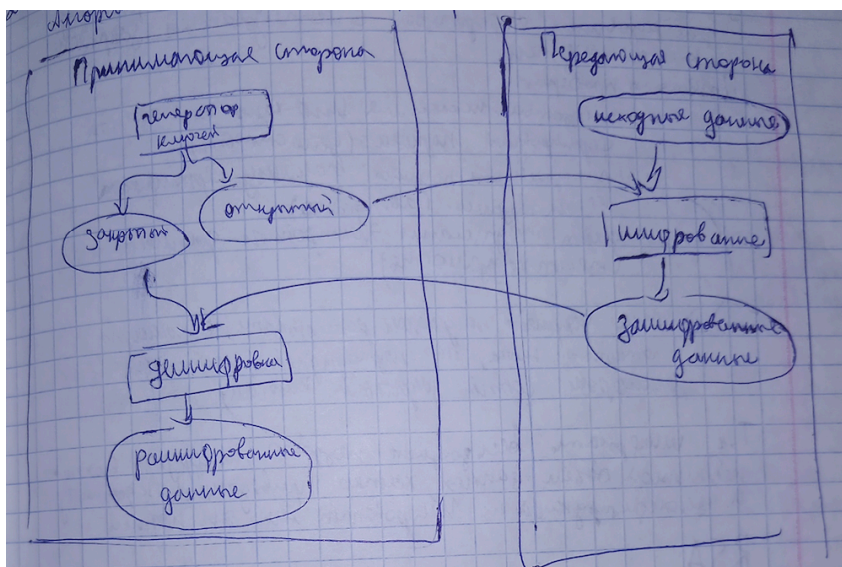 Принимающая сторона
генератор
ключей
закрытый
открытый
дешифровка
расшифрованные
данные
Передающая сторона
исходные данные
шифрование
зашифрованные
данные